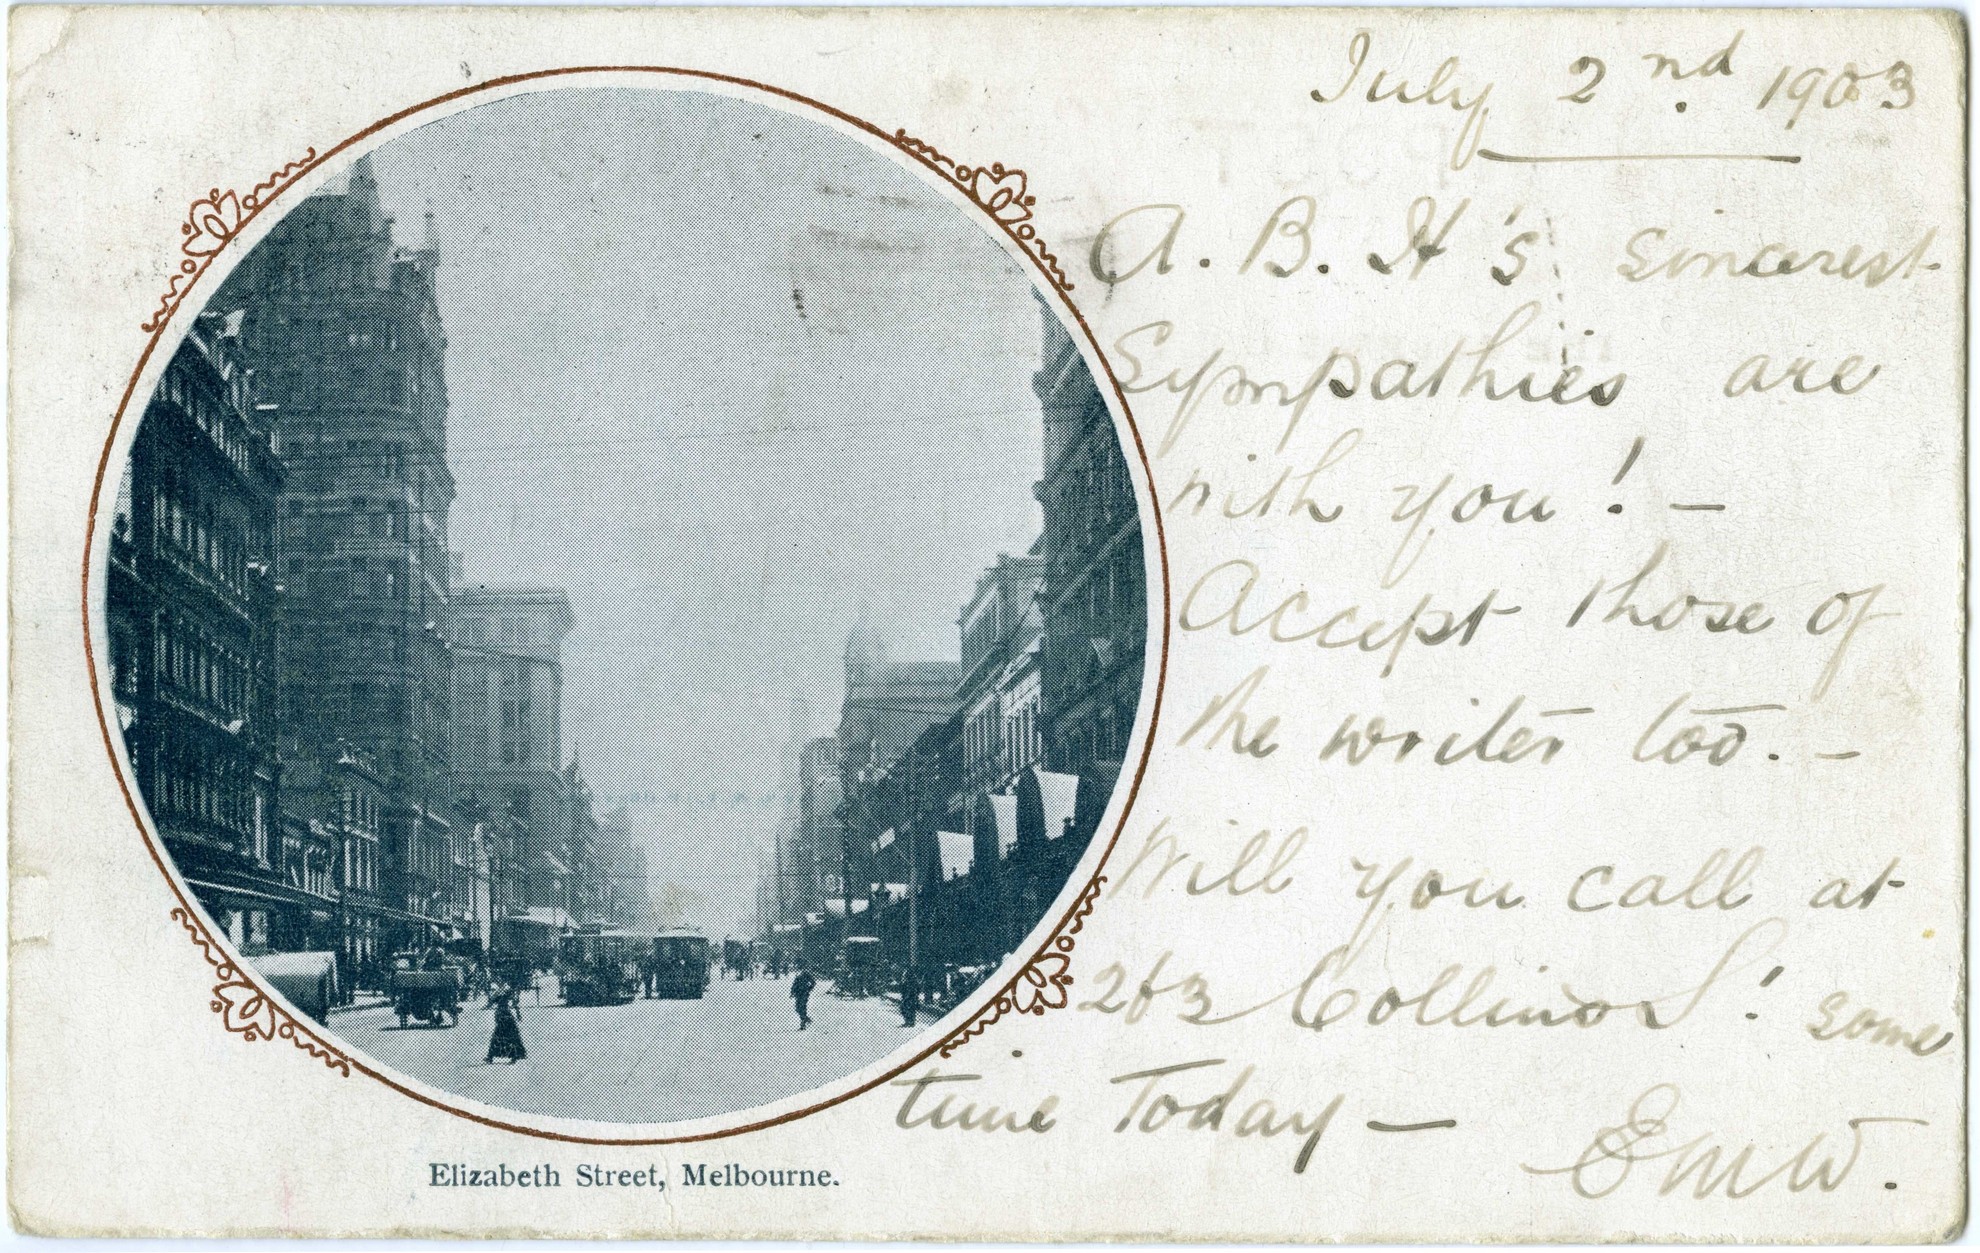 July 2nd 1903
A. B. H's sincerest
Sympathies are
with you! —
Accept those of
the writer too. —
Will you call at
263 Collins St some
time Today —
EMW.
Elizabeth Street, Melbourne.